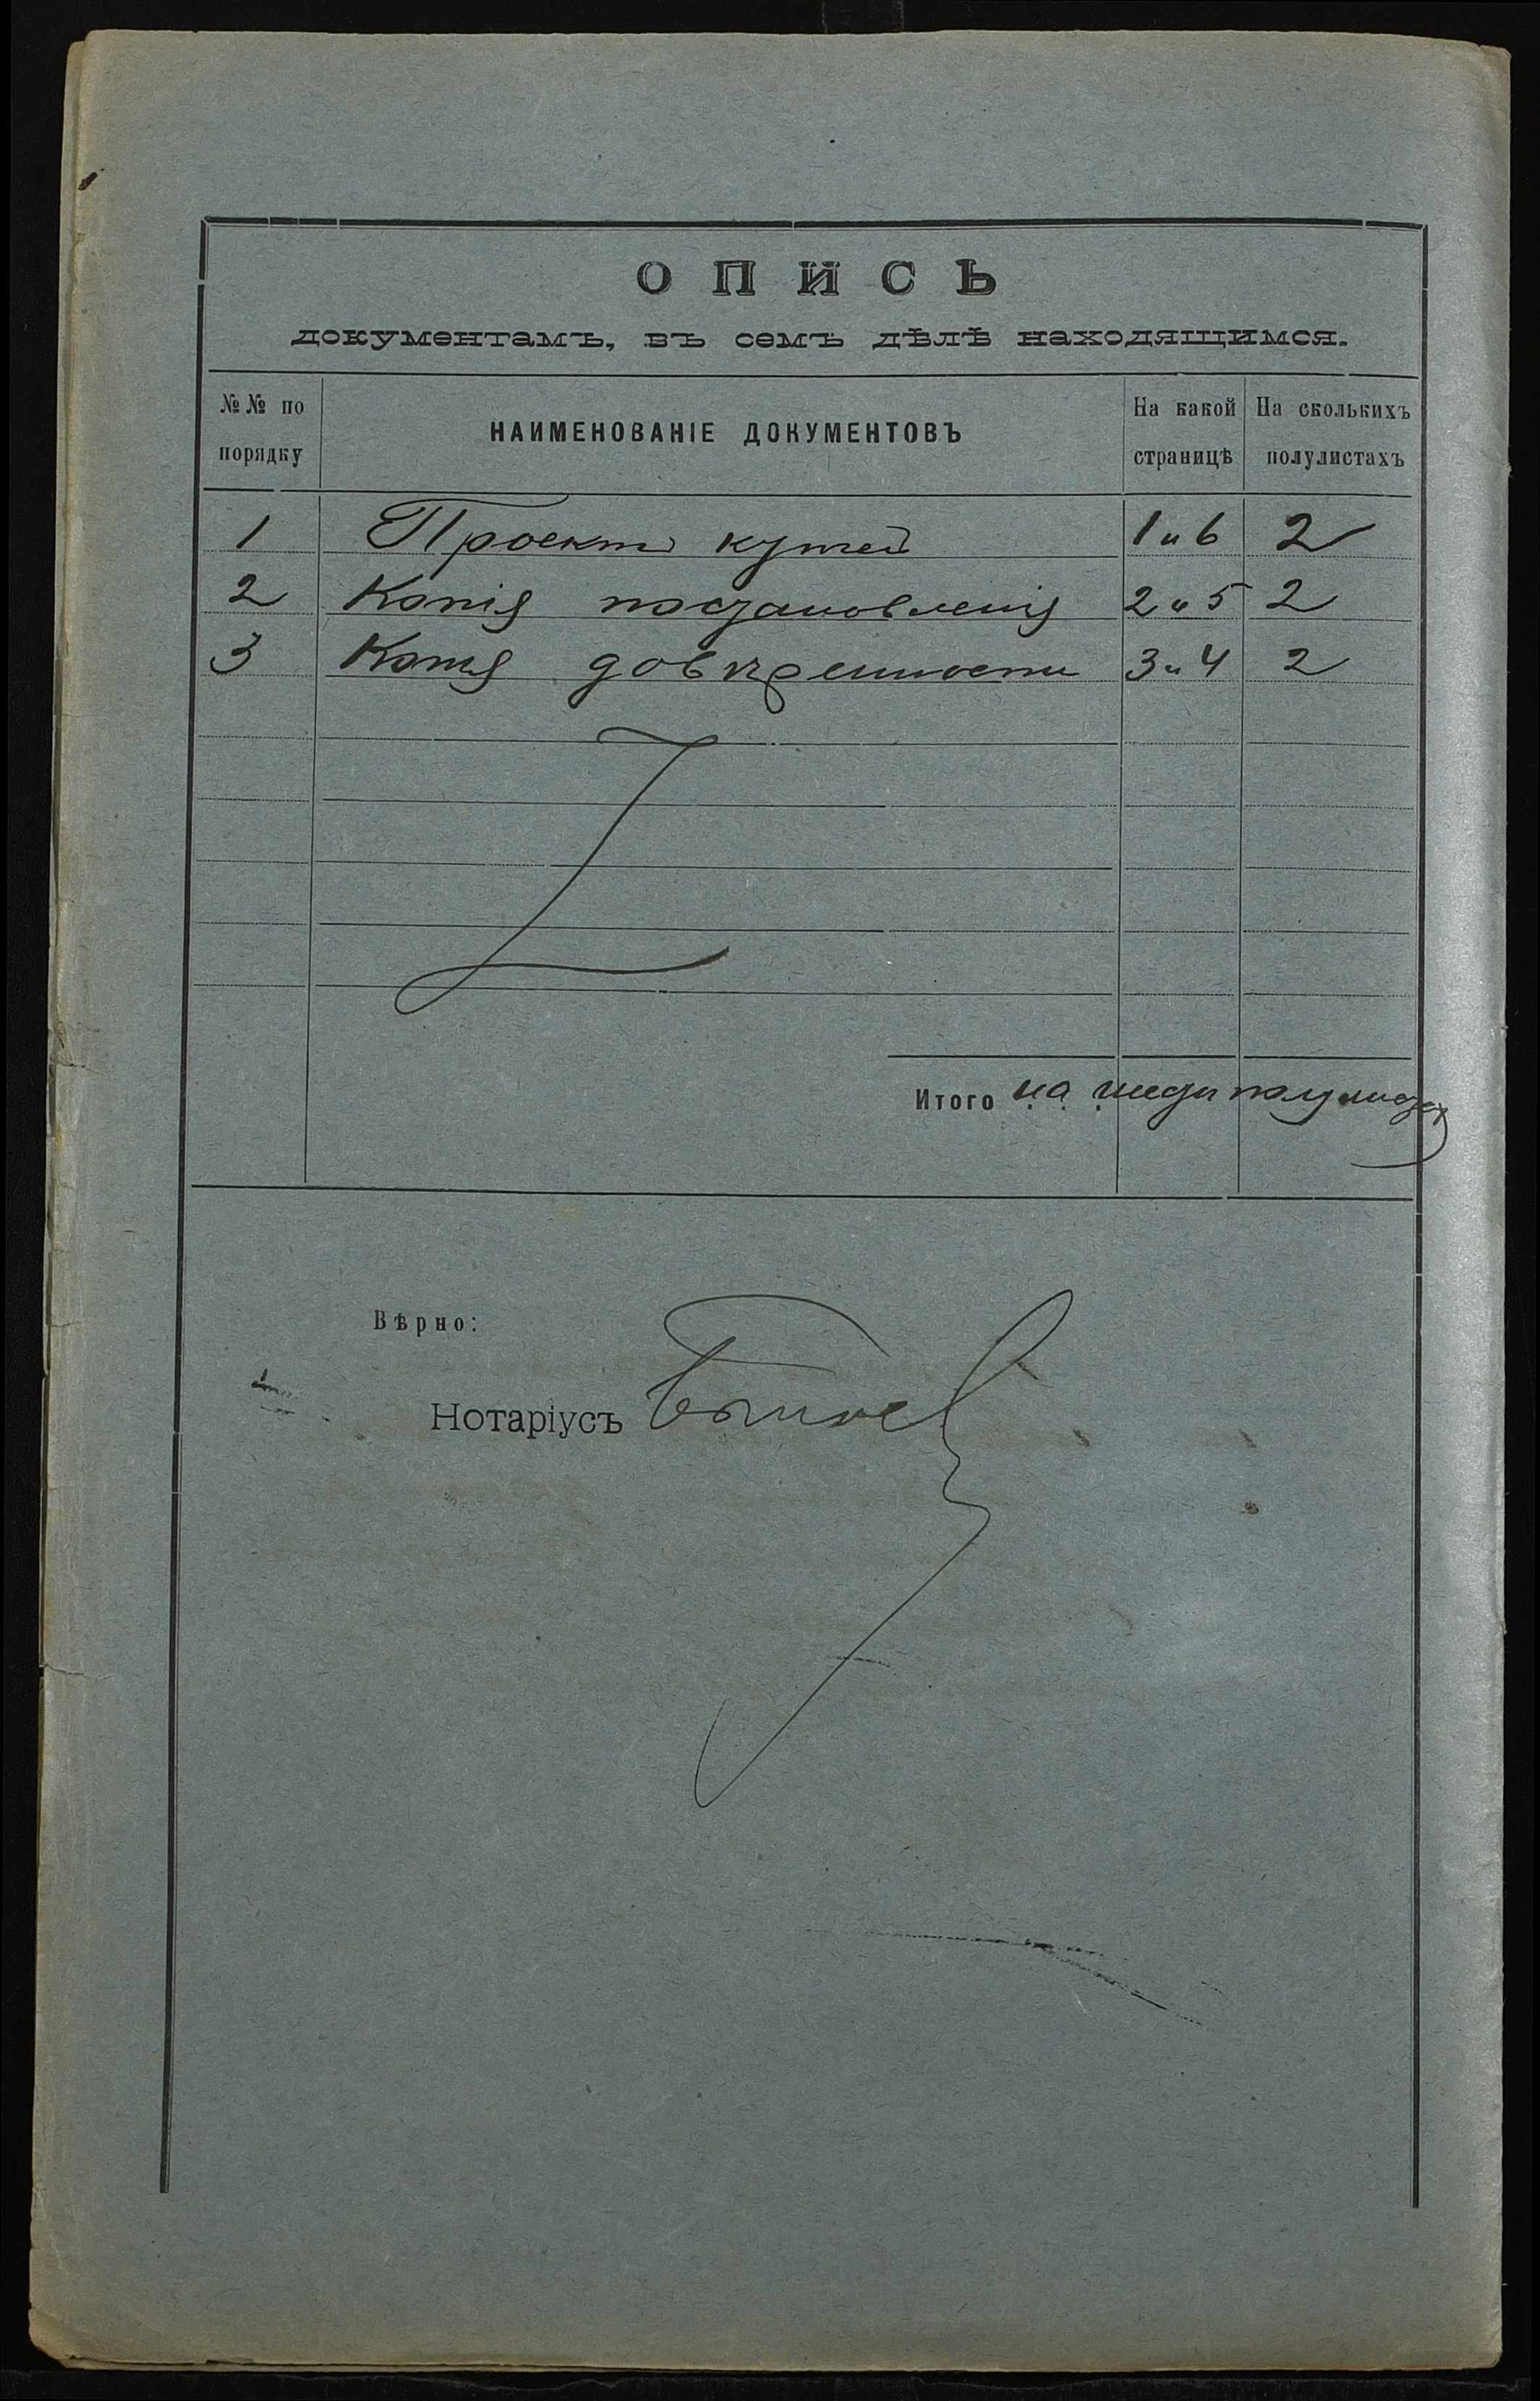 ОПИСЬ
документамъ, въ семъ дѣлѣ находящимся.
№№ по порядку
НАИМЕНОВАНІЕ ДОКУМЕНТОВЪ
На какой страницѣ
На сколькихъ полулистахъ
1 Проектъ купчей 1 и 6 2
2 Копія постановленія 2 и 5 2
3 Копія довѣренности 3 и 4 2
Итого на шести полулистах
Вѣрно:
Нотаріусъ